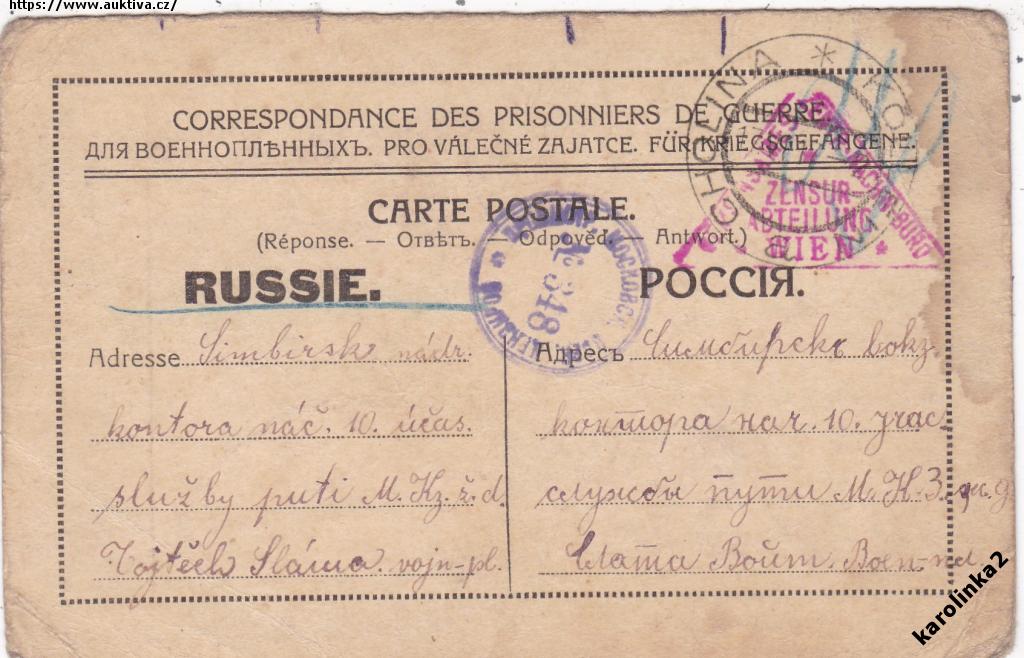 https://www.auktiva.cz/
CORRESPONDANCE DES PRISONNIERS DE GUERRE.
ДЛЯ ВОЕННОПЛѢННЫХЪ. PRO VÁLEČNÉ ZAJATCE. FÜR KRIEGSGEFANGENE.
CARTE POSTALE.
(Réponse. — Отвѣтъ. — Odpověd. — Antwort.)
ZENSUR-
ABTEILUNG
WIEN
RUSSIE.
РОССІЯ.
№ 348
Adresse Simbirsk nádr.
kontora náč. 10. účas.
služby puti M. Kz. ž. d.
Vojtěch Sláma. vojn-pl.
Адресъ Симбирскъ вокз.
контора нач. 10. учас.
службы пути М. К. З. ж. д.
Слама Войт. Воен-пл.
karolinka2